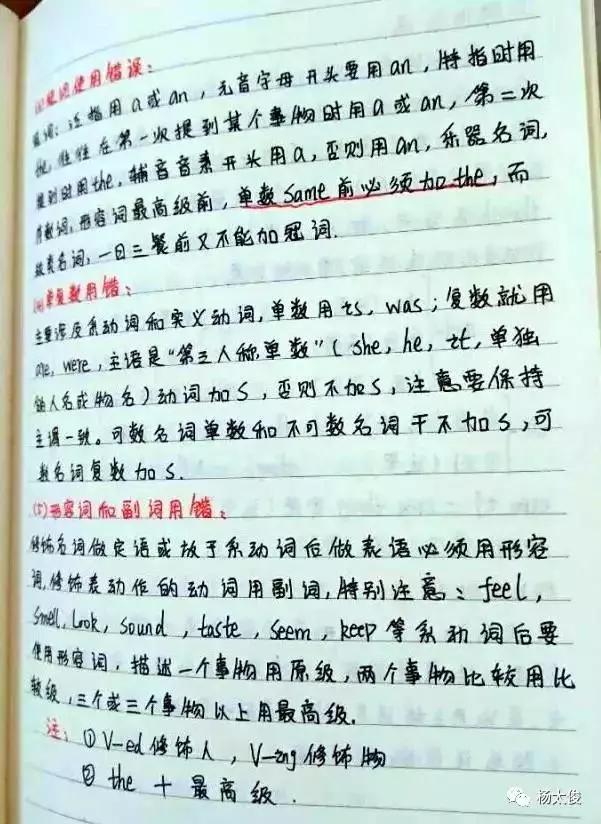 (3)冠词使用错误:
冠词:泛指用a或an,元音字母开头要用an,特指时用
the,往往在第一次提到某个事物时用a或an,第二次
提到时用the,辅音音素开头用a,否则用an,乐器名词,
序数词,形容词最高级前,单数same前必须加the,而
球类名词,一日三餐前又不能加冠词.
(4)单复数用错:
主要涉及系动词和实义动词,单数用is,was;复数就用
are,were,主语是“第三人称单数”(she,he,it,单独
的人名或物名)动词加s,否则不加s,注意要保持
主谓一致。可数名词单数和不可数名词干不加s,可
数名词复数加s.
(5)形容词和副词用错:
修饰名词做定语或放于系动词后做表语必须用形容
词,修饰表动作的动词用副词,特别注意:feel,
smell,look,sound,taste,seem,keep等系动词后要
使用形容词,描述一个事物用原级,两个事物比较用比
较级,三个或三个事物以上用最高级.
注:①V-ed修饰人,V-ing修饰物
②the+最高级.
杨太俊